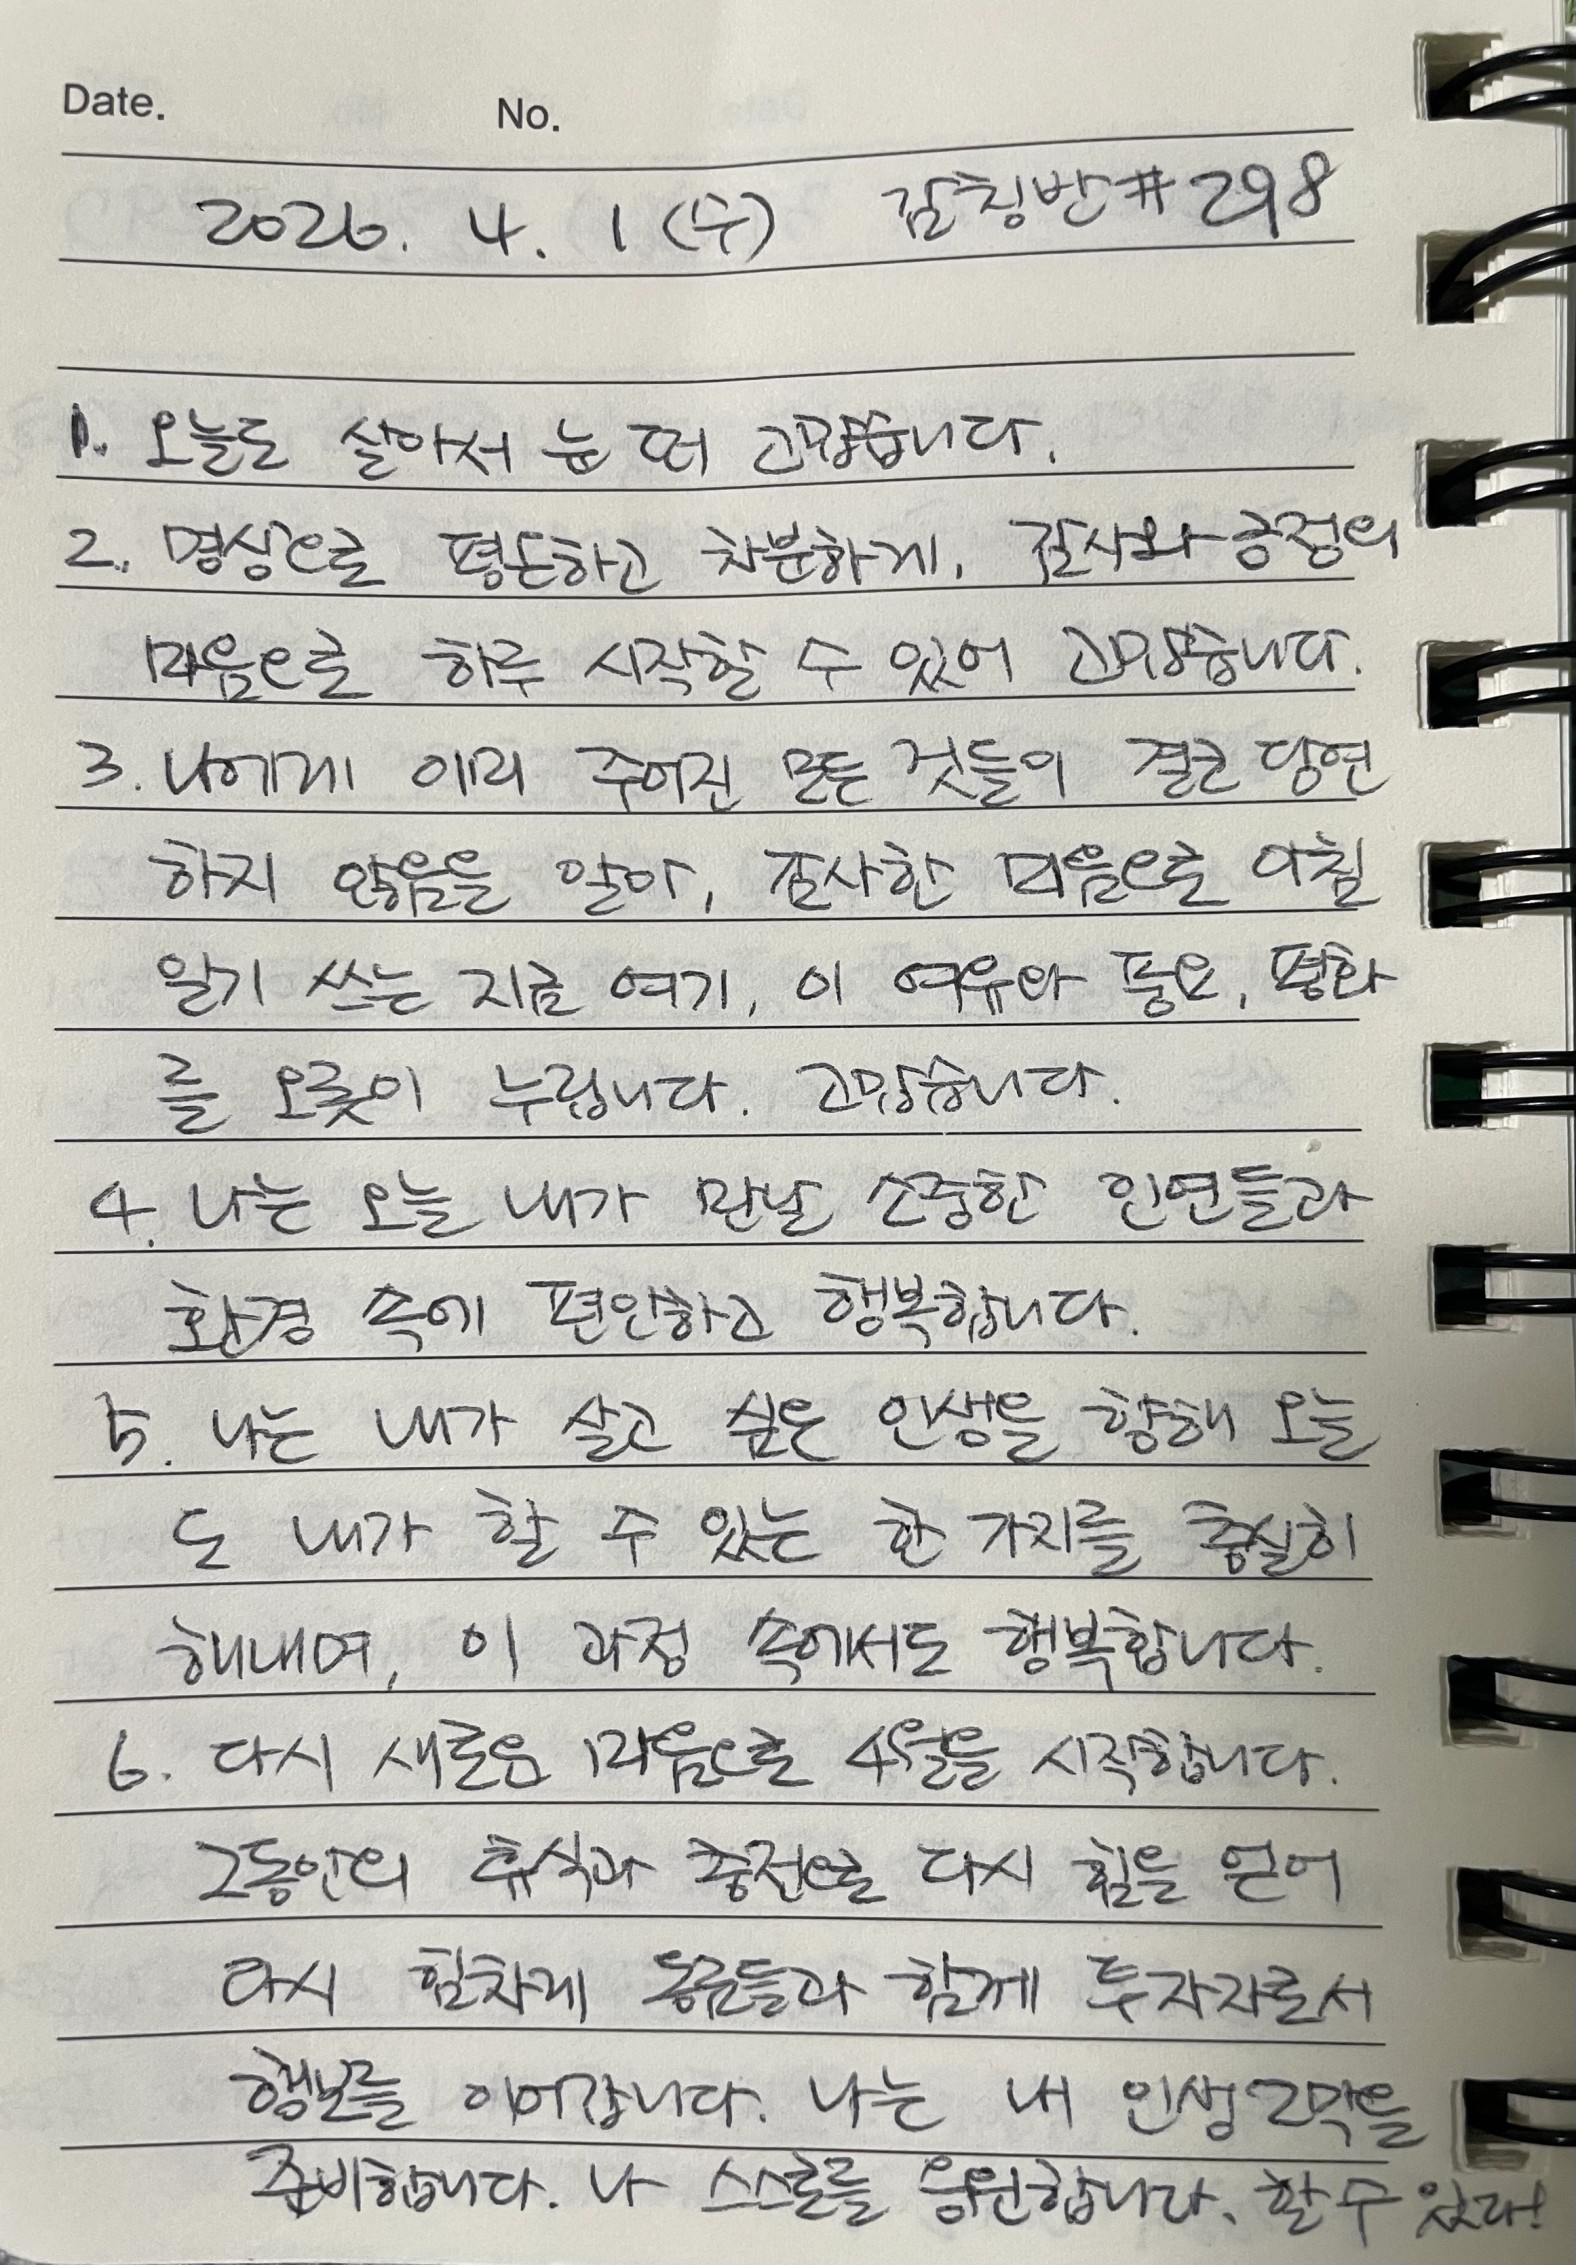 Date. No.
2026. 4. 1 (수) 감칭반#298
1. 오늘도 살아서 눈 떠 고맙습니다.
2. 명상으로 평온하고 차분하게, 감사와 긍정의
마음으로 하루 시작할 수 있어 고맙습니다.
3. 나에게 이미 주어진 모든 것들이 결코 당연
하지 않음을 알아, 감사한 마음으로 아침
일기 쓰는 지금 여기, 이 여유와 풍요, 평화
를 오롯이 누립니다. 고맙습니다.
4. 나는 오늘 내가 만날 소중한 인연들과
환경 속에 편안하고 행복합니다.
5. 나는 내가 살고 싶은 인생을 향해 오늘
도 내가 할 수 있는 한 가지를 충실히
해내며, 이 과정 속에서도 행복합니다.
6. 다시 새로운 마음으로 4월을 시작합니다.
그동안의 휴식과 충전으로 다시 힘을 얻어
다시 힘차게 동료들과 함께 투자자로서
행보를 이어갑니다. 나는 내 인생 2막을
준비합니다. 나 스스로를 응원합니다. 할 수 있다!